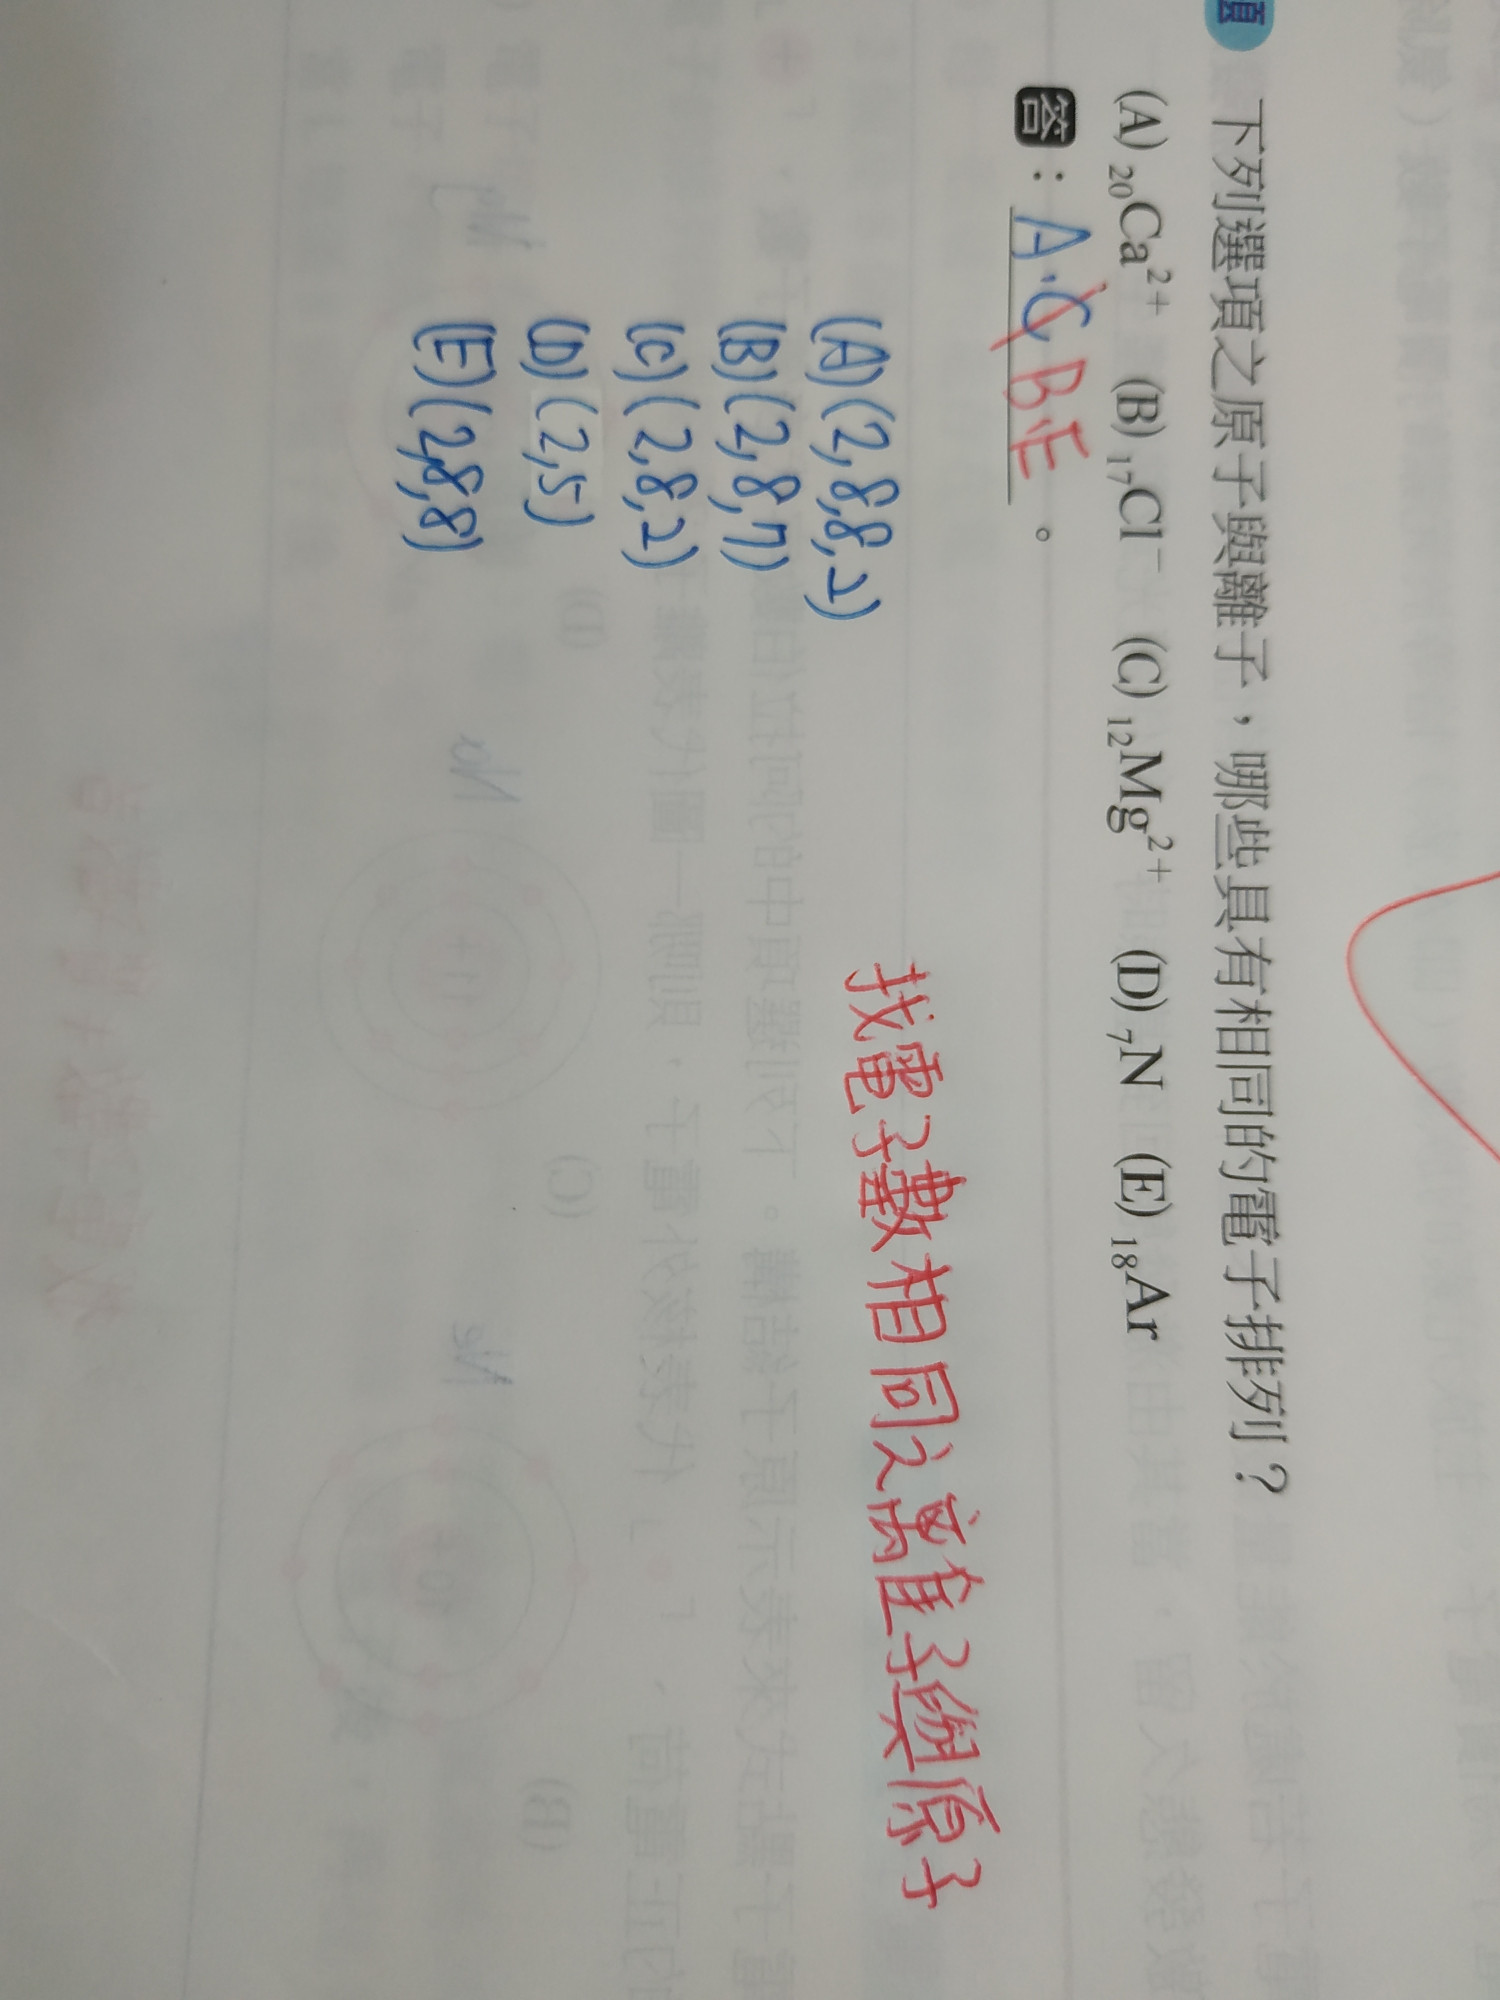 下列選項之原子與離子，哪些具有相同的電子排列？
(A) ₂₀Ca²⁺ (B) ₁₇Cl⁻ (C) ₁₂Mg²⁺ (D) ₇N (E) ₁₈Ar
答：A、C B、E。
(A)(2,8,8,2)
(B)(2,8,7)
(C)(2,8,2)
(D)(2,5)
(E)(2,8,8)
找電子數相同之離子與原子